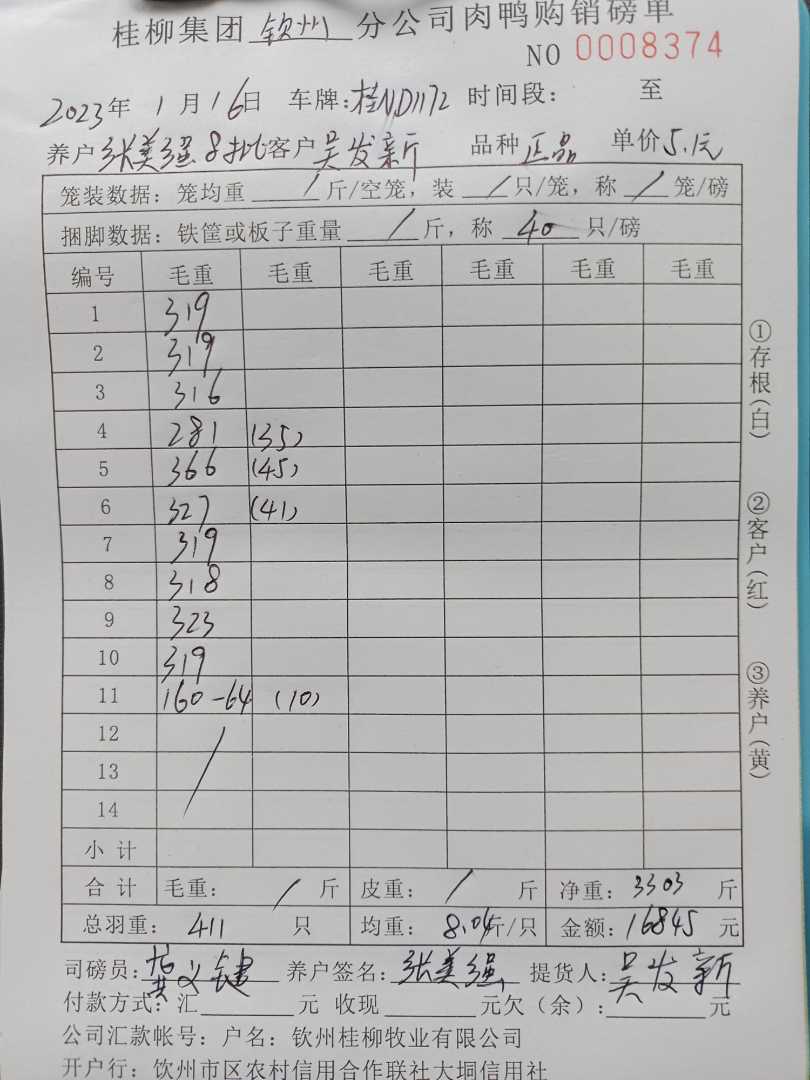 桂柳集团 钦州 分公司肉鸭购销磅单
NO 0008374
2023年 1月16日 车牌:桂ND1172 时间段: 至
养户张美强8批客户吴发新 品种正品 单价5.1元
笼装数据: 笼均重 / 斤/空笼, 装 / 只/笼, 称 / 笼/磅
捆脚数据: 铁筐或板子重量 / 斤, 称 40 只/磅
编号 毛重 毛重 毛重 毛重 毛重 毛重
1 319
2 319
3 316
4 281 (35)
5 366 (45)
6 327 (41)
7 319
8 318
9 323
10 319
11 160-64 (10)
12 /
13
14
小计
合计 毛重: / 斤 皮重: / 斤 净重: 3303 斤
总羽重: 411 只 均重: 8.04斤/只 金额: 16845 元
司磅员: 黄义键 养户签名: 张美强 提货人: 吴发新
付款方式: 汇 元 收现 元欠(余): 元
公司汇款帐号: 户名: 钦州桂柳牧业有限公司
开户行: 钦州市区农村信用合作联社大垌信用社
①存根(白)
②客户(红)
③养户(黄)